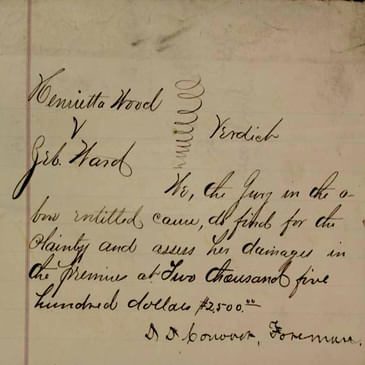 Henrietta Wood
V
Zeb. Ward
Verdict
We, the Jury in the a-
bove entitled cause, do find for the
Plaintiff and assess her damages in
the premises at Two thousand five
hundred dollars $2,500.00
Foreman.